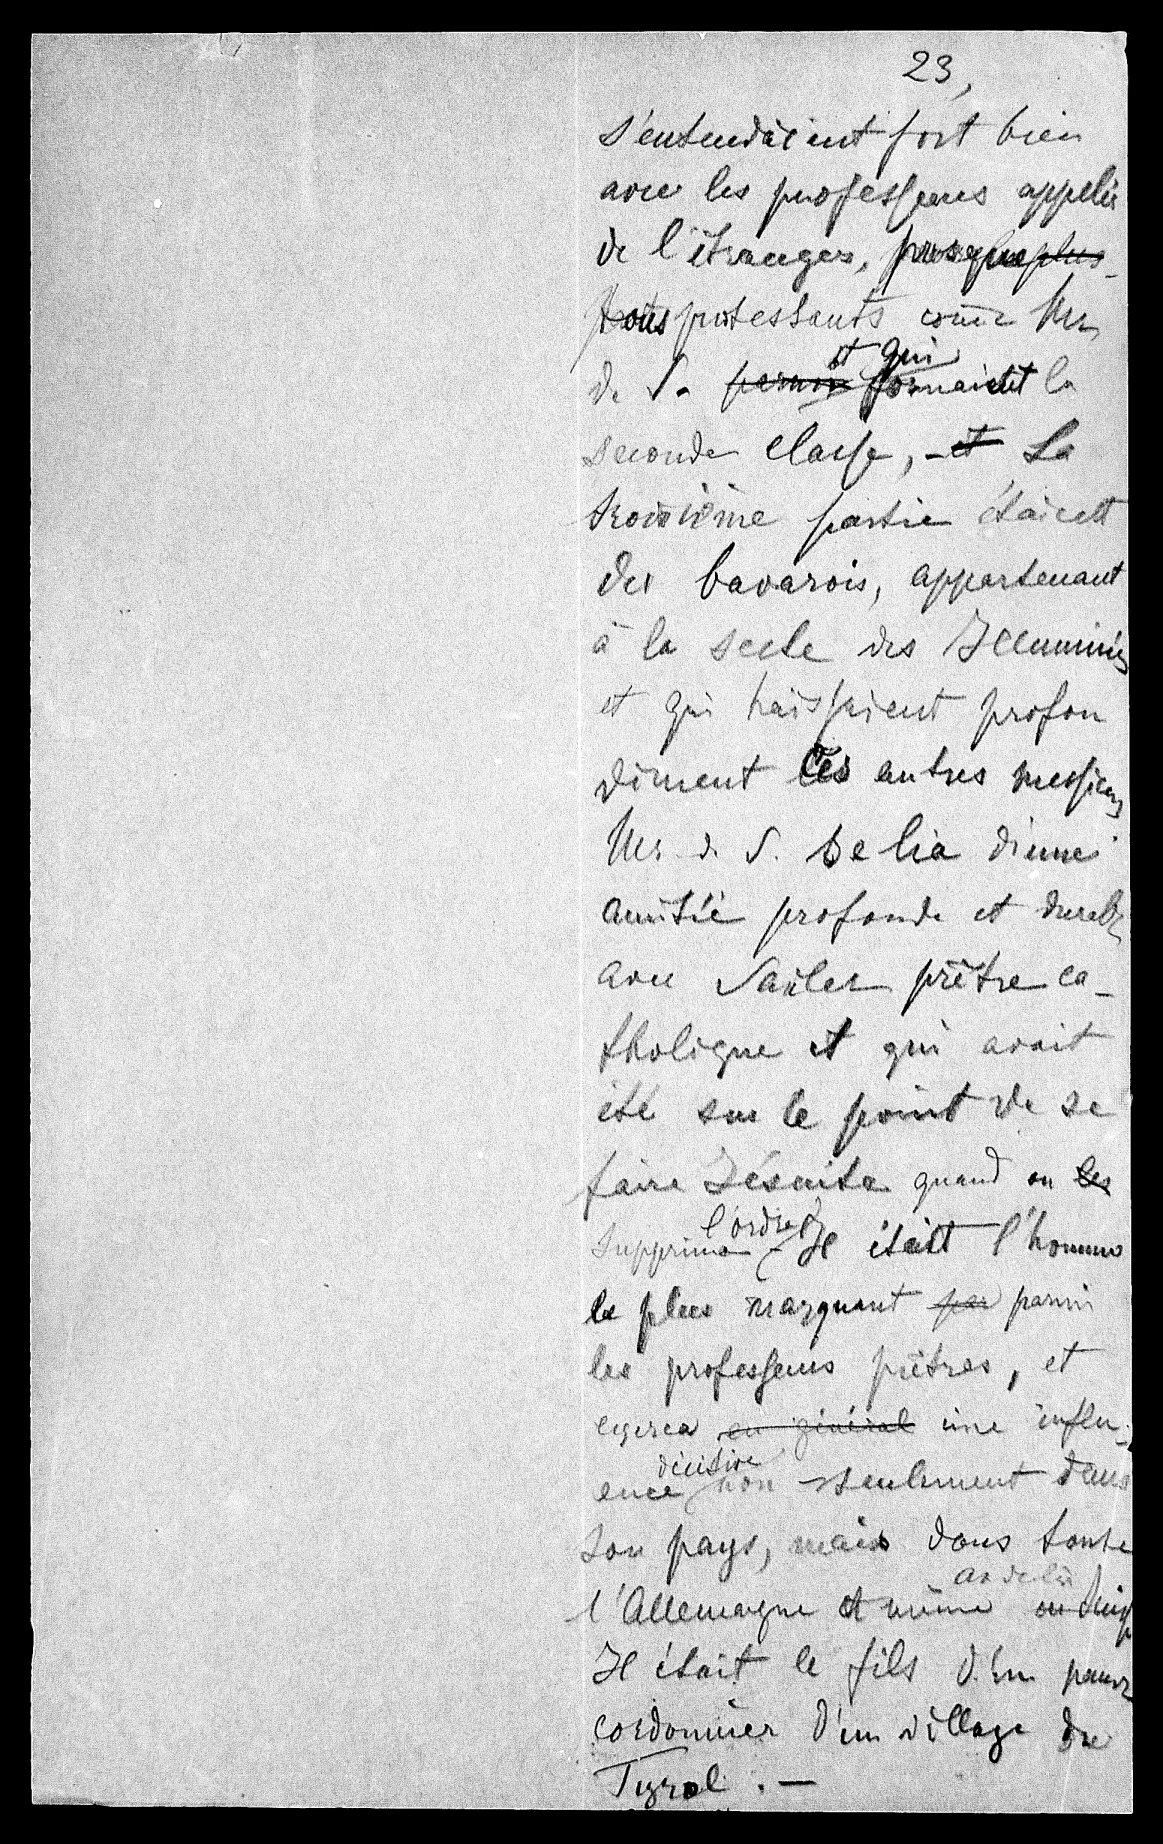 23,
s'entendaient fort bien
avec les professeurs appelés
de l'étranger, presque plus
tous protestants come Mr
de S. parmi et qui formaient la
seconde classe, - et La
troisième partie étaient
des bavarois, appartenant
à la secte des Illuminés
et qui haissaient profon
dément les autres messieurs
Mr. d. S. se lia d'une
amitié profonde et durable
avec Sailer prêtre ca-
tholique et qui avait
été sur le point de se
faire Jésuite quand on les
supprima l'ordre. Il était l'homme
le plus marquant par parmi
les professeurs prêtres, et
exerca en général une influ-
ence décisive non seulement dans
son pays, mais dans toute
l'Allemagne et même au delà
Il était le fils d'un pauvre
cordonnier d'un village du
Tyrol. —